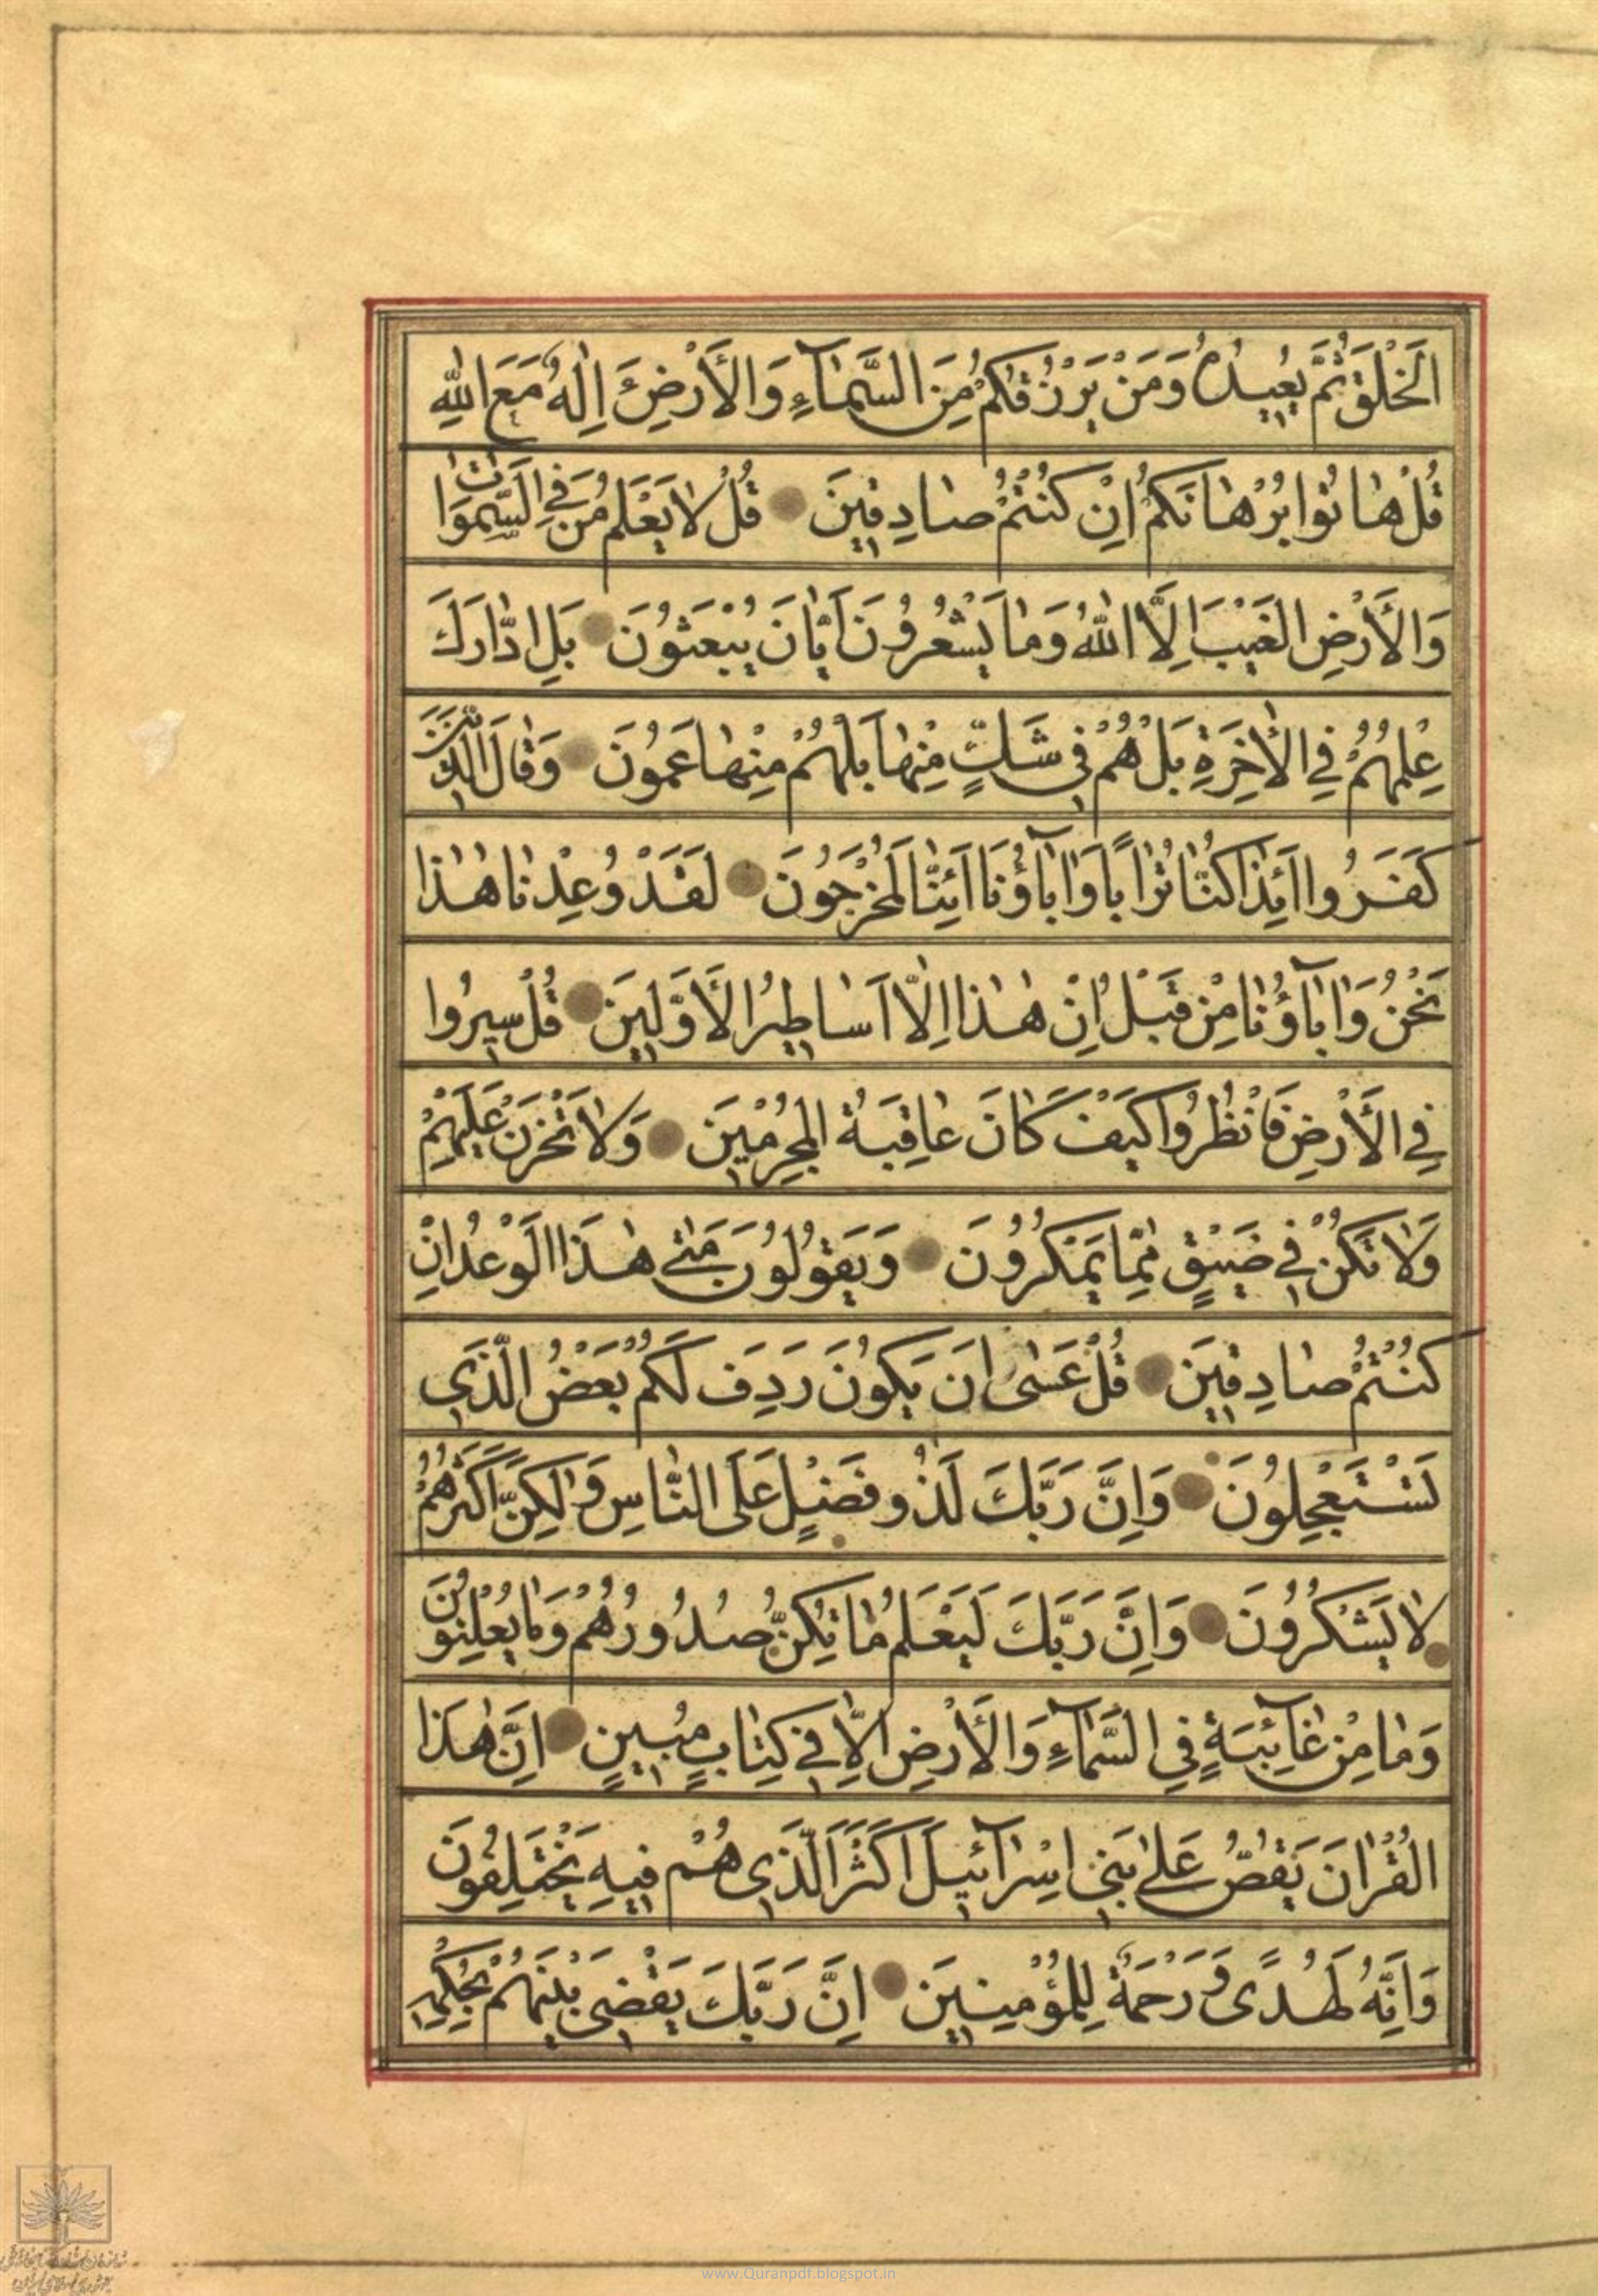 الْخَلْقَ ثُمَّ يُعِيدُهُ وَمَنْ يَرْزُقُكُمْ مِنَ السَّمَآءِ وَالْأَرْضِ ءَاِلٰهٌ مَعَ اللهِ
قُلْ هَاتُوا بُرْهَانَكُمْ اِنْ كُنْتُمْ صَادِقِينَ قُلْ لَا يَعْلَمُ مَنْ فِي السَّمٰوَاتِ
وَالْأَرْضِ الْغَيْبَ اِلَّا اللهُ وَمَا يَشْعُرُونَ اَيَّانَ يُبْعَثُونَ بَلِ ادَّارَكَ
عِلْمُهُمْ فِي الْاٰخِرَةِ بَلْ هُمْ فِي شَكٍّ مِنْهَا بَلْ هُمْ مِنْهَا عَمُونَ وَقَالَ الَّذِينَ
كَفَرُوا اَئِذَا كُنَّا تُرَابًا وَاٰبَآؤُنَا اَئِنَّا لَمُخْرَجُونَ لَقَدْ وُعِدْنَا هٰذَا
نَحْنُ وَاٰبَآؤُنَا مِنْ قَبْلُ اِنْ هٰذَا اِلَّا اَسَاطِيرُ الْأَوَّلِينَ قُلْ سِيرُوا
فِي الْأَرْضِ فَانْظُرُوا كَيْفَ كَانَ عَاقِبَةُ الْمُجْرِمِينَ وَلَا تَحْزَنْ عَلَيْهِمْ
وَلَا تَكُنْ فِي ضَيْقٍ مِمَّا يَمْكُرُونَ وَيَقُولُونَ مَتٰى هٰذَا الْوَعْدُ اِنْ
كُنْتُمْ صَادِقِينَ قُلْ عَسٰى اَنْ يَكُونَ رَدِفَ لَكُمْ بَعْضُ الَّذِي
تَسْتَعْجِلُونَ وَاِنَّ رَبَّكَ لَذُو فَضْلٍ عَلَى النَّاسِ وَلٰكِنَّ اَكْثَرَهُمْ
لَا يَشْكُرُونَ وَاِنَّ رَبَّكَ لَيَعْلَمُ مَا تُكِنُّ صُدُورُهُمْ وَمَا يُعْلِنُونَ
وَمَا مِنْ غَآئِبَةٍ فِي السَّمَآءِ وَالْأَرْضِ اِلَّا فِي كِتَابٍ مُبِينٍ اِنَّ هٰذَا
الْقُرْاٰنَ يَقُصُّ عَلٰى بَنِي اِسْرَآئِيلَ اَكْثَرَ الَّذِي هُمْ فِيهِ يَخْتَلِفُونَ
وَاِنَّهُ لَهُدًى وَرَحْمَةٌ لِلْمُؤْمِنِينَ اِنَّ رَبَّكَ يَقْضِي بَيْنَهُمْ بِحُكْمِهِ
www.Quranpdf.blogspot.in